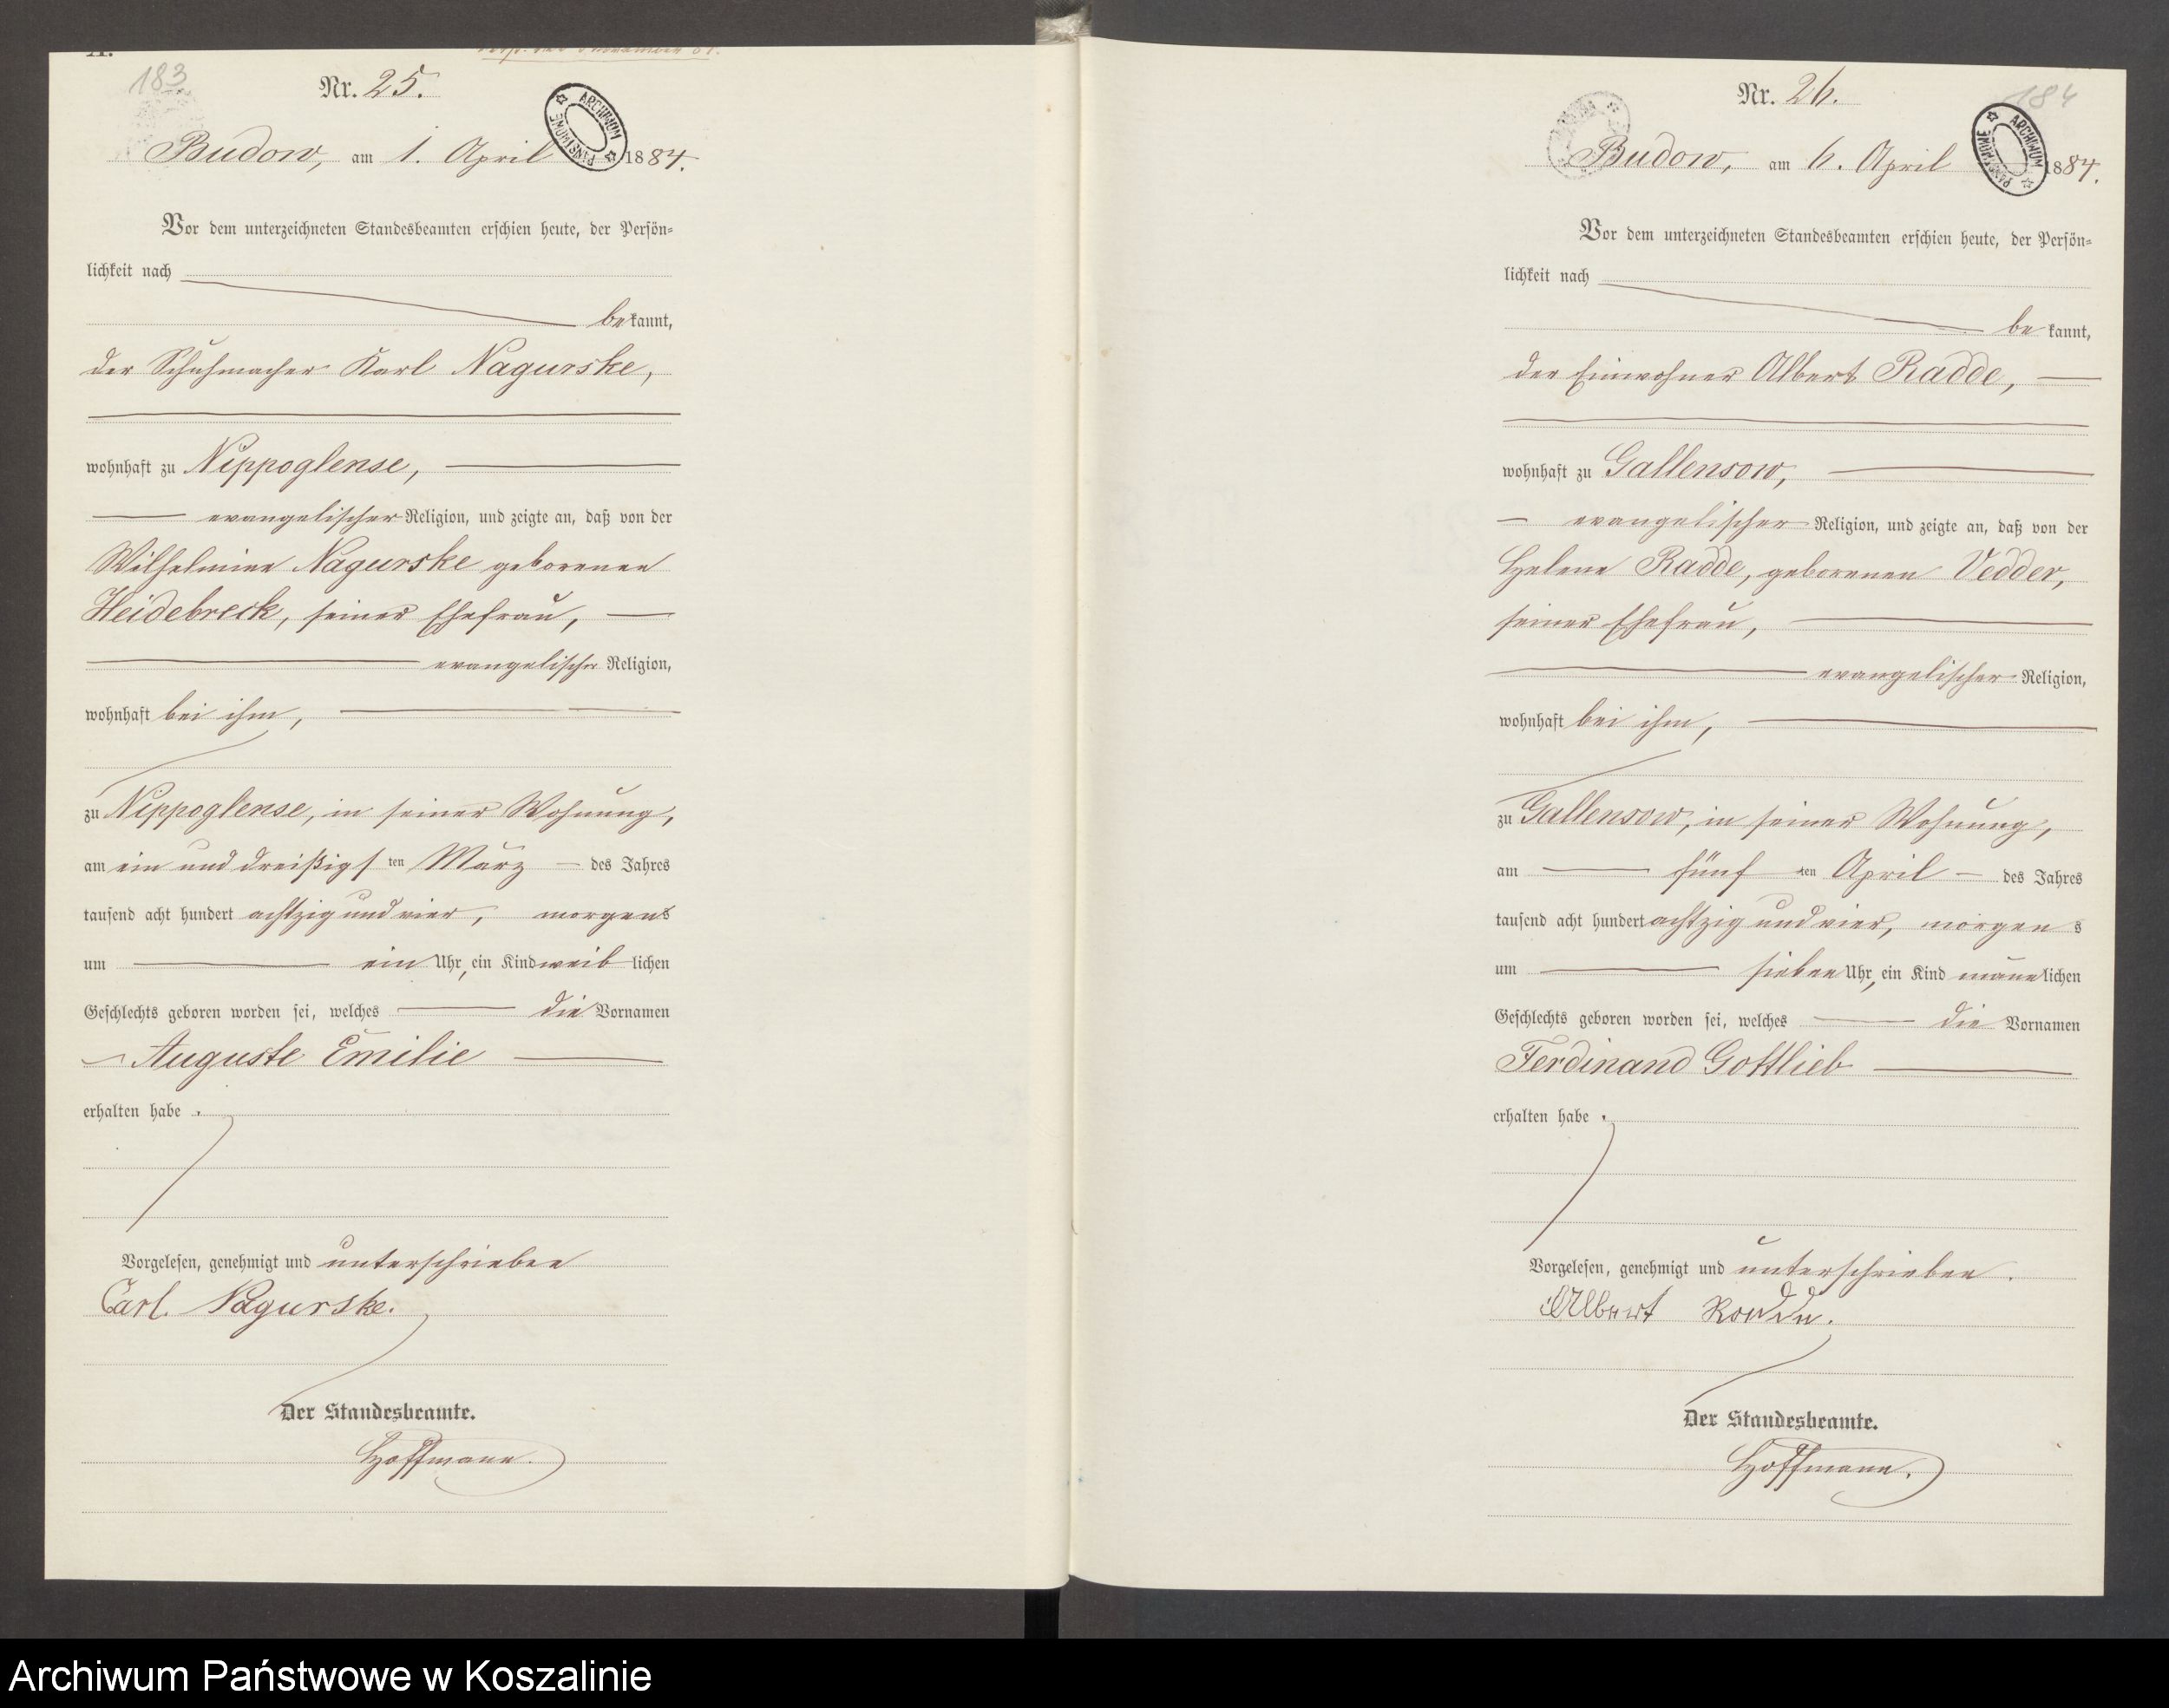 183
Nr. 25.
ARCHIWUM PAŃSTWOWE
Budow, am 1. April 1884.
Vor dem unterzeichneten Standesbeamten erschien heute, der Persön-
lichkeit nach
bekannt,
der Schuhmacher Karl Nagurske,
wohnhaft zu Nippoglense,
evangelischer Religion, und zeigte an, daß von der
Wilhelmine Nagurske geborenen
Heidebreck, seiner Ehefrau,
evangelischer Religion,
wohnhaft bei ihm,
zu Nippoglense, in seiner Wohnung,
am ein und dreißigsten März des Jahres
tausend acht hundert achtzig und vier, morgens
um ein Uhr, ein Kind weiblichen
Geschlechts geboren worden sei, welches die Vornamen
Auguste Emilie
erhalten habe.
Vorgelesen, genehmigt und unterschrieben
Carl. Nagurske.
Der Standesbeamte.
Hoffmann.
184
Nr. 26.
ARCHIWUM PAŃSTWOWE
Budow, am 6. April 1884.
Vor dem unterzeichneten Standesbeamten erschien heute, der Persön-
lichkeit nach
bekannt,
der Einwohner Albert Radde,
wohnhaft zu Gallensow,
evangelischer Religion, und zeigte an, daß von der
Helene Radde, geborenen Vedder,
seiner Ehefrau,
evangelischer Religion,
wohnhaft bei ihm,
zu Gallensow, in seiner Wohnung,
am fünften April des Jahres
tausend acht hundert achtzig und vier, morgens
um sieben Uhr, ein Kind männlichen
Geschlechts geboren worden sei, welches die Vornamen
Ferdinand Gottlieb
erhalten habe.
Vorgelesen, genehmigt und unterschrieben.
Albert Radde.
Der Standesbeamte.
Hoffmann.
Archiwum Państwowe w Koszalinie